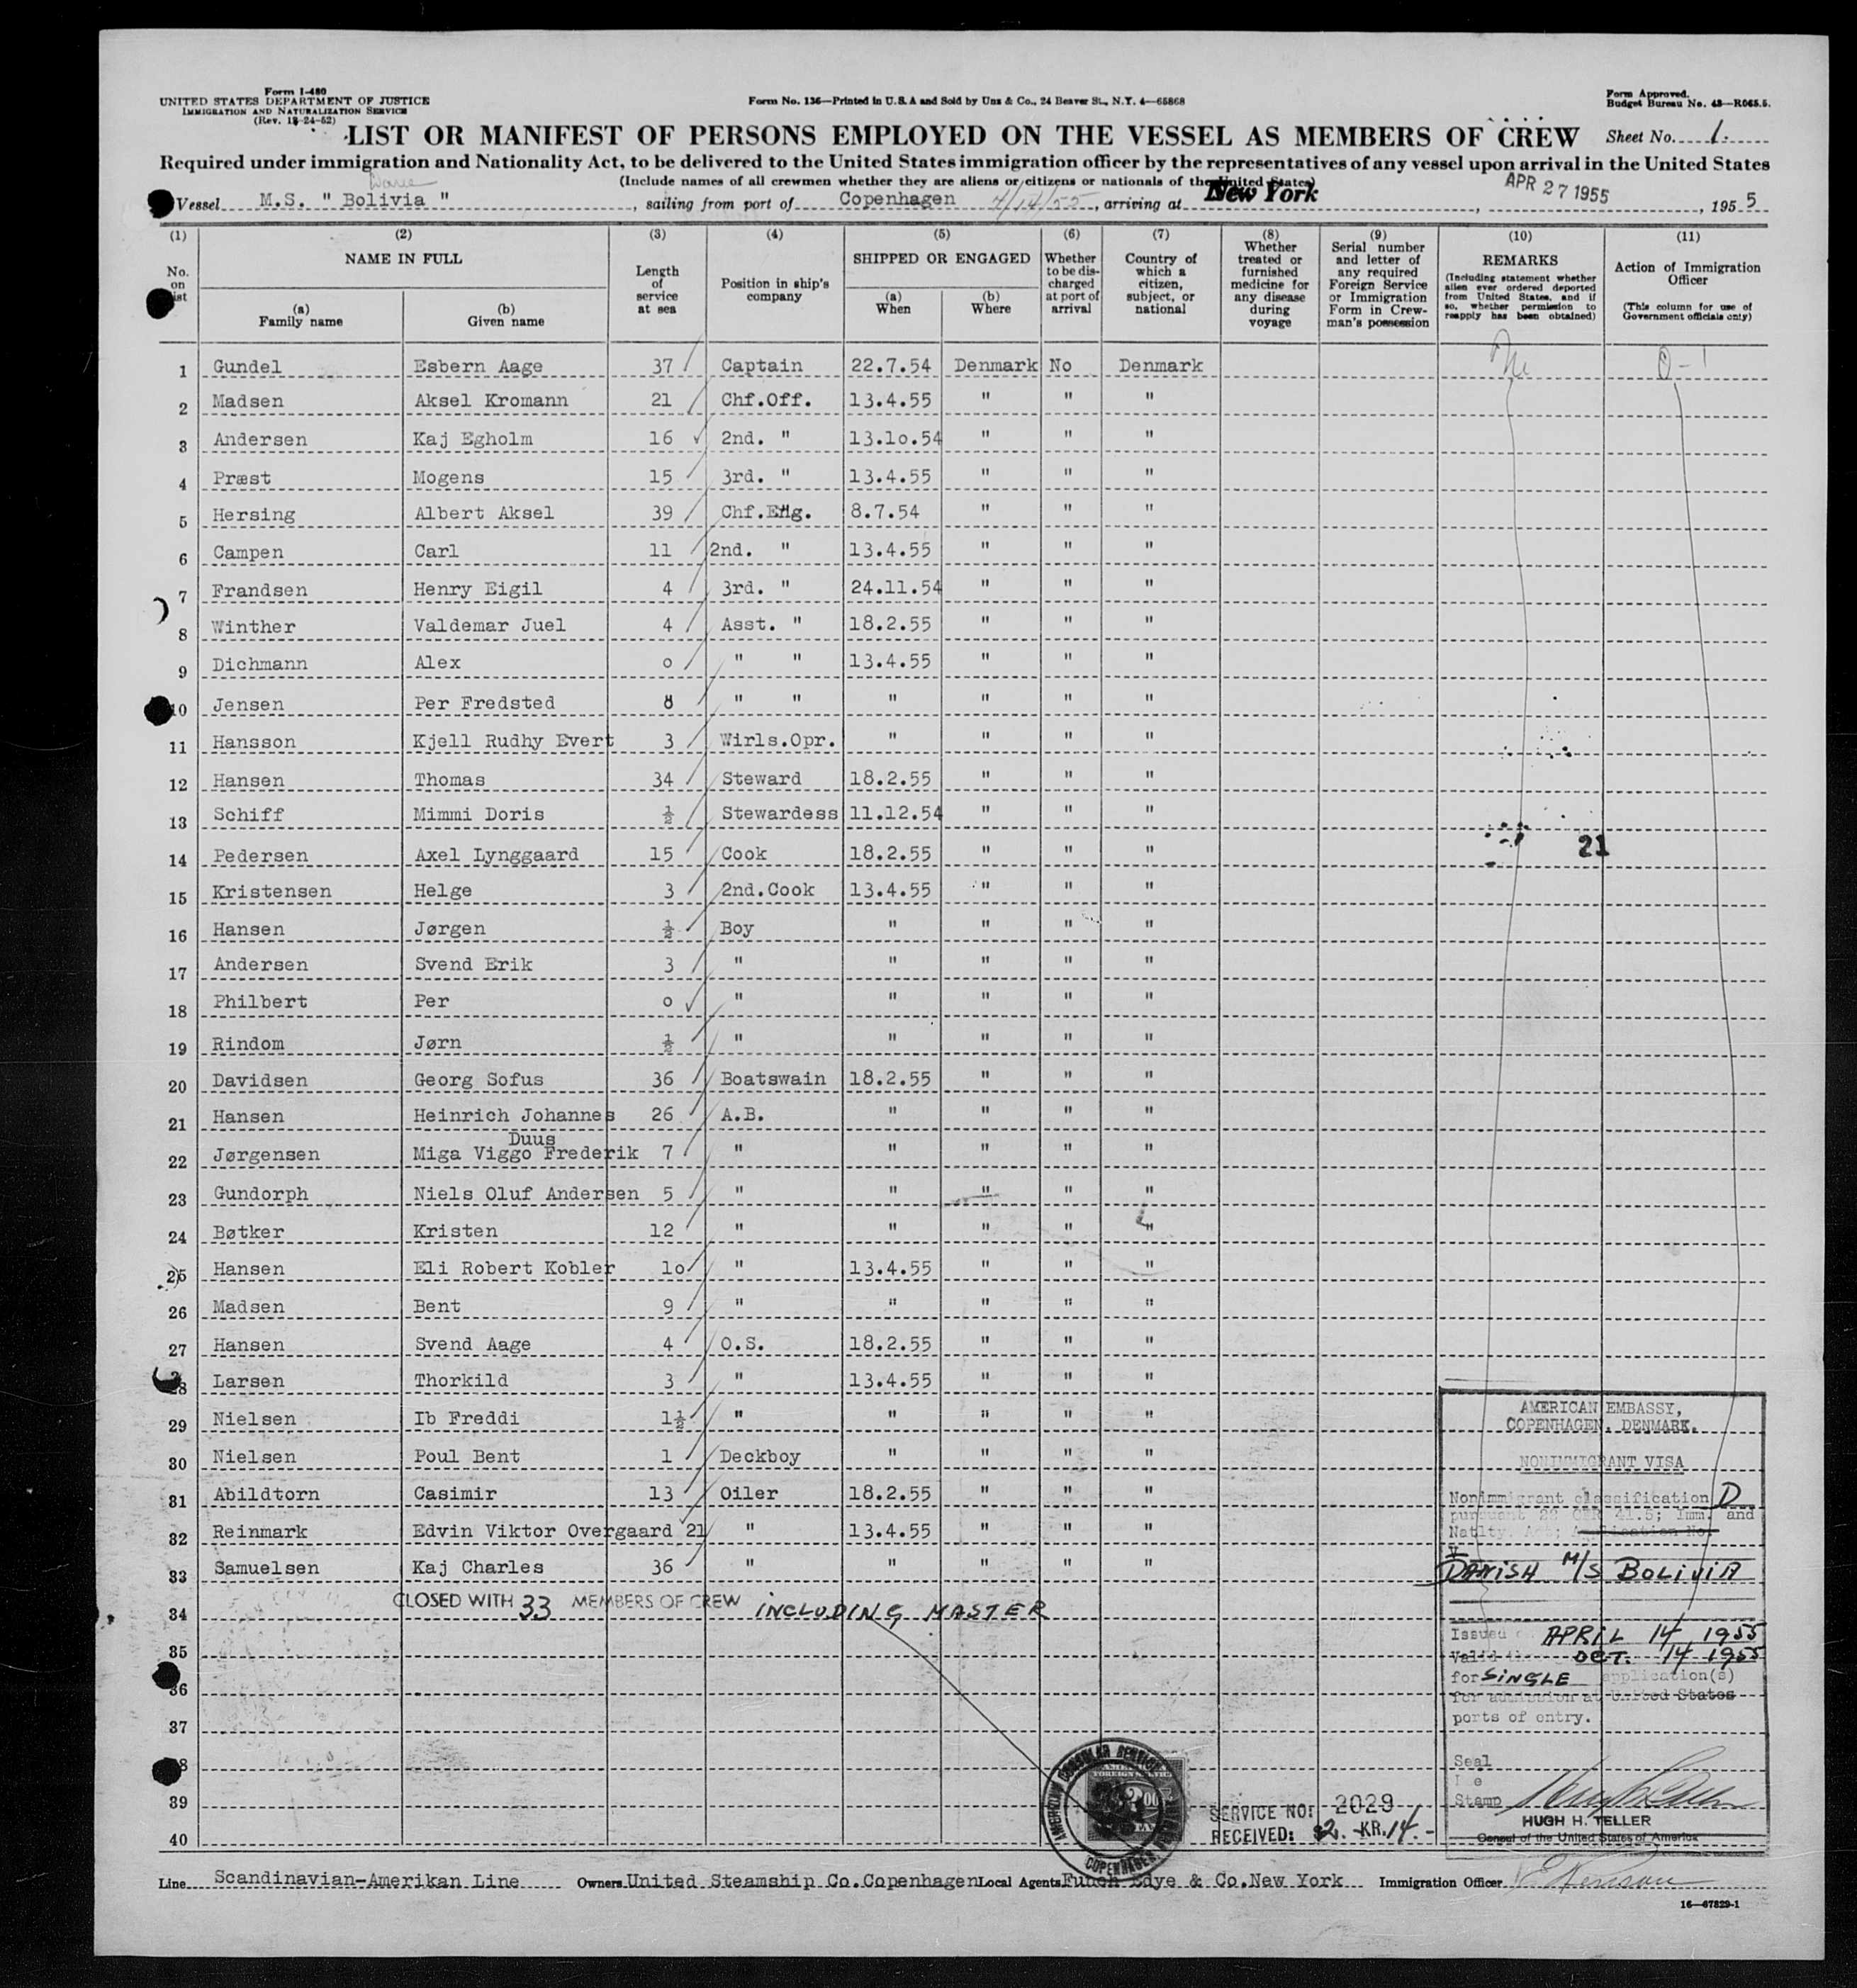 Form I-480
UNITED STATES DEPARTMENT OF JUSTICE
IMMIGRATION AND NATURALIZATION SERVICE
(Rev. 12-24-52)
Form No. 136—Printed in U.S.A and Sold by Unz & Co., 24 Beaver St., N.Y. 4—65868
Form Approved.
Budget Bureau No. 43—R065.5.
LIST OR MANIFEST OF PERSONS EMPLOYED ON THE VESSEL AS MEMBERS OF CREW Sheet No. 1.
Required under immigration and Nationality Act, to be delivered to the United States immigration officer by the representatives of any vessel upon arrival in the United States
(Include names of all crewmen whether they are aliens or citizens or nationals of the United States)
Vessel M.S. " Bolivia ", sailing from port of Copenhagen 4/14/55, arriving at New York, APR 27 1955, 195 5
(1) No. on list
(2) NAME IN FULL
(a) Family name
(b) Given name
(3) Length of service at sea
(4) Position in ship's company
(5) SHIPPED OR ENGAGED
(a) When
(b) Where
(6) Whether to be discharged at port of arrival
(7) Country of which a citizen, subject, or national
(8) Whether treated or furnished medicine for any disease during voyage
(9) Serial number and letter of any required Foreign Service or Immigration Form in Crewman's possession
(10) REMARKS (Including statement whether alien ever ordered deported from United States, and if so, whether permission to reapply has been obtained)
(11) Action of Immigration Officer (This column for use of Government officials only)
1 Gundel Esbern Aage 37 Captain 22.7.54 Denmark No Denmark
2 Madsen Aksel Kromann 21 Chf.Off. 13.4.55 " " "
3 Andersen Kaj Egholm 16 2nd. " 13.10.54 " " "
4 Præst Mogens 15 3rd. " 13.4.55 " " "
5 Hersing Albert Aksel 39 Chf.Eng. 8.7.54 " " "
6 Campen Carl 11 2nd. " 13.4.55 " " "
7 Frandsen Henry Eigil 4 3rd. " 24.11.54 " " "
8 Winther Valdemar Juel 4 Asst. " 18.2.55 " " "
9 Dichmann Alex o " " 13.4.55 " " "
10 Jensen Per Fredsted 8 " " " " " "
11 Hansson Kjell Rudhy Evert 3 Wirls.Opr. " " " "
12 Hansen Thomas 34 Steward 18.2.55 " " "
13 Schiff Mimmi Doris ½ Stewardess 11.12.54 " " "
21
14 Pedersen Axel Lynggaard 15 Cook 18.2.55 " " "
15 Kristensen Helge 3 2nd.Cook 13.4.55 " " "
16 Hansen Jørgen ½ Boy " " " "
17 Andersen Svend Erik 3 " " " " "
18 Philbert Per o " " " " "
19 Rindom Jørn ½ " " " " "
20 Davidsen Georg Sofus 36 Boatswain 18.2.55 " " "
21 Hansen Heinrich Johannes 26 A.B. " " " "
Duus
22 Jørgensen Miga Viggo Frederik 7 " " " " "
23 Gundorph Niels Oluf Andersen 5 " " " " "
24 Bøtker Kristen 12 " " " " "
25 Hansen Eli Robert Kobler 10 " 13.4.55 " " "
26 Madsen Bent 9 " " " " "
27 Hansen Svend Aage 4 O.S. 18.2.55 " " "
28 Larsen Thorkild 3 " 13.4.55 " " "
29 Nielsen Ib Freddi 1½ " " " " "
30 Nielsen Poul Bent 1 Deckboy " " " "
31 Abildtorn Casimir 13 Oiler 18.2.55 " " "
32 Reinmark Edvin Viktor Overgaard 21 " 13.4.55 " " "
33 Samuelsen Kaj Charles 36 " " " " "
34 CLOSED WITH 33 MEMBERS OF CREW INCLUDING MASTER
35
36
37
38
39
40
AMERICAN EMBASSY,
COPENHAGEN, DENMARK.
NONIMMIGRANT VISA
Nonimmigrant classification D
pursuant 22 CFR 41.5; Imm. and
Natlty. Act; Application No.
V
DANISH M/S BOLIVIA
Issued APRIL 14 1955
Valid OCT. 14 1955
for SINGLE application(s)
for admission at United States
ports of entry.
Seal
Stamp
HUGH H. TELLER
Consul of the United States of America
AMERICAN CONSULAR SERVICE
COPENHAGEN
SERVICE NO: 2029
RECEIVED: $2. KR. 14.-
Line Scandinavian-Amerikan Line Owners United Steamship Co. Copenhagen Local Agents Funch Edye & Co. New York Immigration Officer
16—67829-1